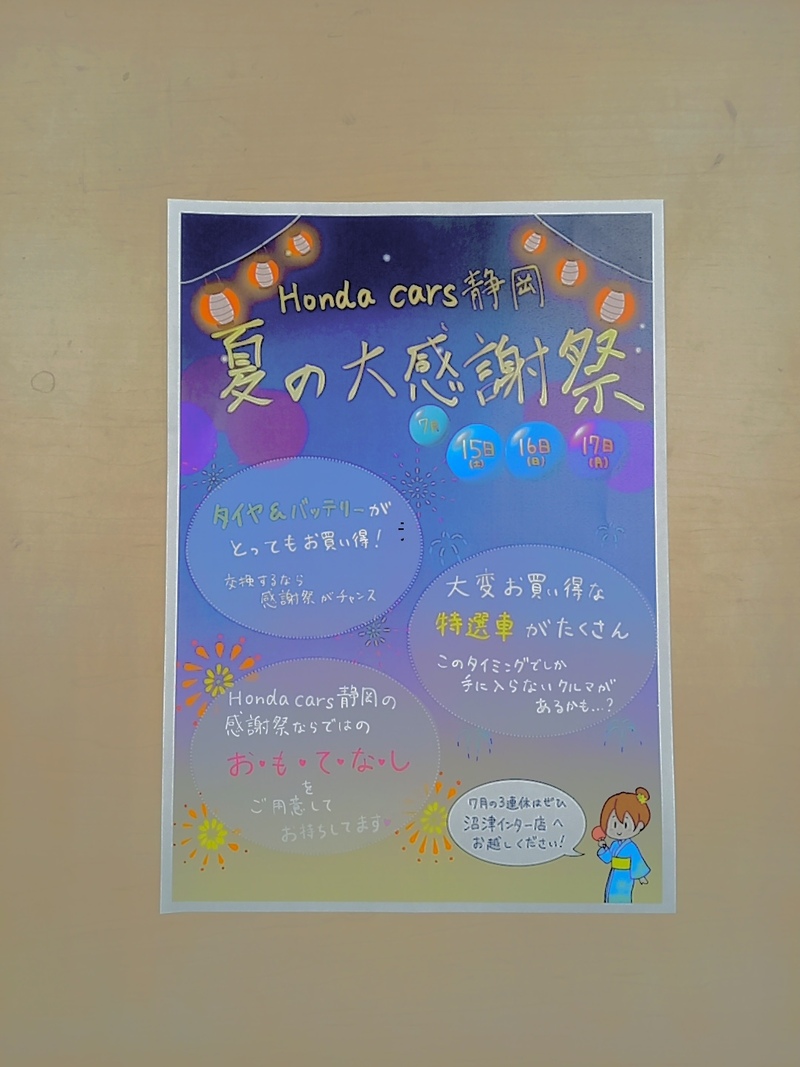 Honda cars 静岡
夏の大感謝祭
7月
15日
(土)
16日
(日)
17日
(月)
タイヤ&バッテリーが
とってもお買い得!
交換するなら
感謝祭がチャンス
大変お買い得な
特選車がたくさん
このタイミングでしか
手に入らないクルマが
あるかも…?
Honda cars 静岡の
感謝祭ならではの
お♥も♥て♥な♥し
を
ご用意して
お待ちしてます♥
7月の3連休はぜひ
沼津インター店へ
お越しください!